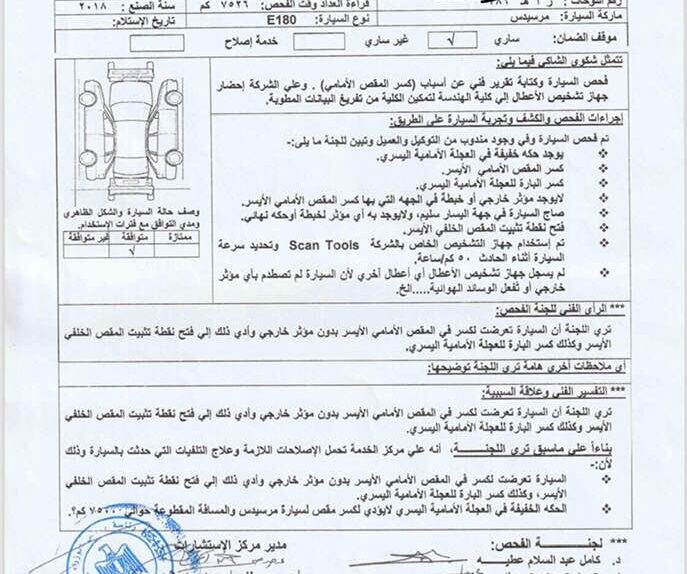 رقم اللوحات : ر أ هـ
قراءة العداد وقت الفحص: ٧٥٢٦ كم
سنة الصنع : ٢٠١٨
ماركة السيارة: مرسيدس
نوع السيارة: E180
تاريخ الإستلام:
موقف الضمان: ساري √ غير ساري خدمة إصلاح
تتمثل شكوي الشاكي فيما يلي:
فحص السيارة وكتابة تقرير فني عن أسباب (كسر المقص الأمامي) . وعلي الشركة إحضار
جهاز تشخيص الأعطال إلي كلية الهندسة لتمكين الكلية من تفريغ البيانات المطوبة.
إجراءات الفحص والكشف وتجربة السيارة على الطريق:
تم فحص السيارة وفي وجود مندوب من التوكيل والعميل وتبين للجنة ما يلى:-
❖ يوجد حكه خفيفة في العجلة الأمامية اليسري.
❖ كسر المقص الأمامي الأيسر.
❖ كسر البارة للعجلة الأمامية اليسري.
❖ لايوجد مؤثر خارجي أو خبطة في الجهه التي بها كسر المقص الأمامي الأيسر.
❖ صاج السيارة في جهة اليسار سليم، ولايوجد به أي مؤثر لخبطة أوحكه نهائي.
❖ فتح نقطة تثبيت المقص الخلفي الأيسر.
❖ تم إستخدام جهاز التشخيص الخاص بالشركة Scan Tools وتحديد سرعة
السيارة أثناء الحادث ٥٠ كم/ساعة.
❖ لم يسجل جهاز تشخيص الأعطال أي أعطال أخري لأن السيارة لم تصطدم بأي مؤثر
خارجي أو تُفعل الوسائد الهوائية.....الخ.
وصف حالة السيارة والشكل الظاهري
ومدي التوافق مع فترات الإستخدام.
ممتازة متوافقة غير متوافقة
√
*** الرأي الفني للجنة الفحص:
تري اللجنة أن السيارة تعرضت لكسر في المقص الأمامي الأيسر بدون مؤثر خارجي وأدي ذلك إلي فتح نقطة تثبيت المقص الخلفي
الأيسر وكذلك كسر البارة للعجلة الأمامية اليسري.
أي ملاحظات أخري هامة تري اللجنة توضيحها:
*** التفسير الفني وعلاقة السببية:
تري اللجنة أن السيارة تعرضت لكسر في المقص الأمامي الأيسر بدون مؤثر خارجي وأدي ذلك إلي فتح نقطة تثبيت المقص الخلفي
الأيسر وكذلك كسر البارة للعجلة الأمامية اليسري.
بناءاً علي ماسبق تري اللجنـــــة، أنه علي مركز الخدمة تحمل الإصلاحات اللازمة وعلاج التلفيات التي حدثت بالسيارة وذلك
لأن:-
❖ السيارة تعرضت لكسر في المقص الأمامي الأيسر بدون مؤثر خارجي وأدي ذلك إلي فتح نقطة تثبيت المقص الخلفي
الأيسر، وكذلك كسر البارة للعجلة الأمامية اليسري.
❖ الحكه الخفيفة في العجلة الأمامية اليسري لايؤدي لكسر مقص لسيارة مرسيدس والمسافة المقطوعة حوالي ٧٥٠٠ كم؟.
*** لجنـــــــة الفحص:
مدير مركز الإستشارات
د. كامل عبد السلام عطيه